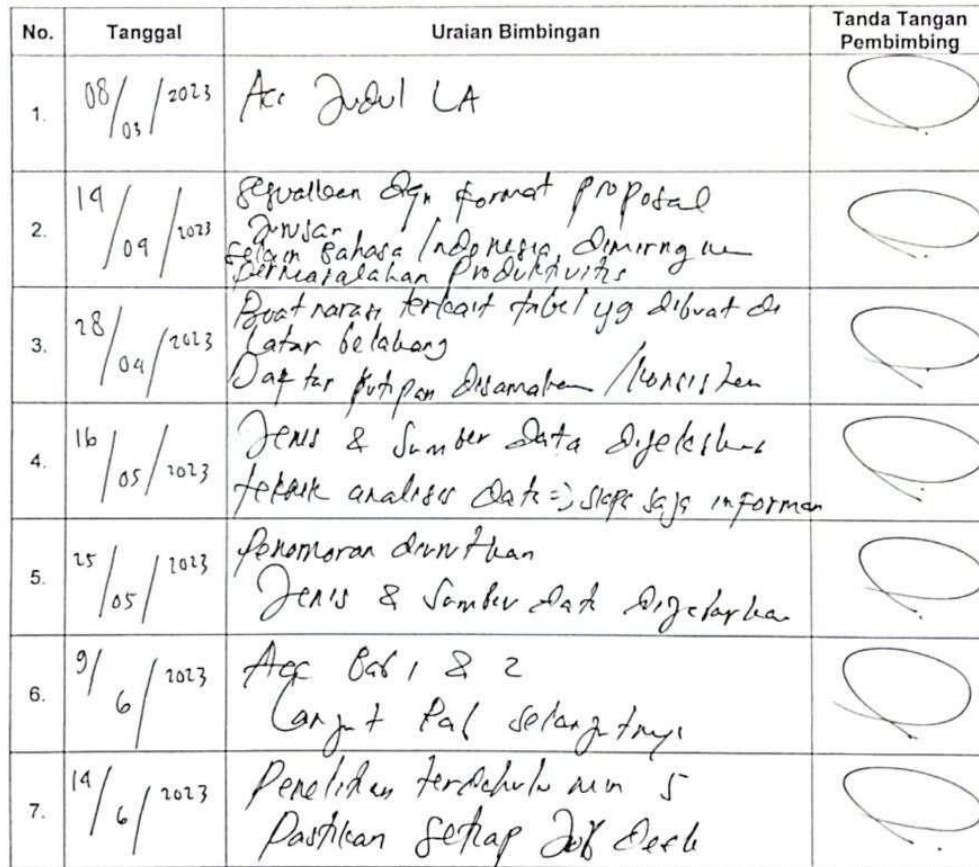 No. Tanggal Uraian Bimbingan Tanda Tangan
Pembimbing
1. 08/03/2023 Acc Judul LA
2. 19/09/2023 Sesuaikan dgn format proposal
Jurusan
Selain Bahasa Indonesia, dimiringkan
permasalahan Produktivitas
3. 28/04/2023 Buat narasi terkait tabel yg dibuat di
Latar belakang
Daftar kutipan Disamakan / konsisten
4. 16/05/2023 Jenis & Sumber Data Dijelaskan
teknik analisis Data => siapa saja informan
5. 25/05/2023 Penomoran diurutkan
Jenis & Sumber Data Dijelaskan
6. 9/6/2023 Acc Bab 1 & 2
Lanjut Bab selanjutnya
7. 19/6/2023 Penelitian terdahulu min 5
Pastikan Setiap Job Desk